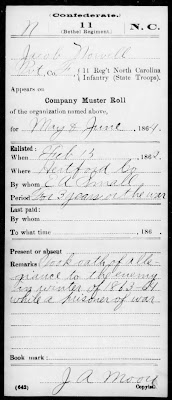 Confederate.
11
(Bethel Regiment.)
N.C.
Jacob
Pvt, Co. 11 Reg't North Carolina
Infantry (State Troops).
Appears on
Company Muster Roll
of the organization named above,
for May & June, 1864.
Enlisted:
When Feb 13, 1862.
Where Hertford Co
By whom E R Small
Period for 3 years or the war
Last paid:
By whom
To what time , 186 .
Present or absent
Remarks: Took oath of alle-
giance to the enemy
in winter of 1863-64
while a prisoner of war
Book mark:
J A Moore
(642) Copyist.